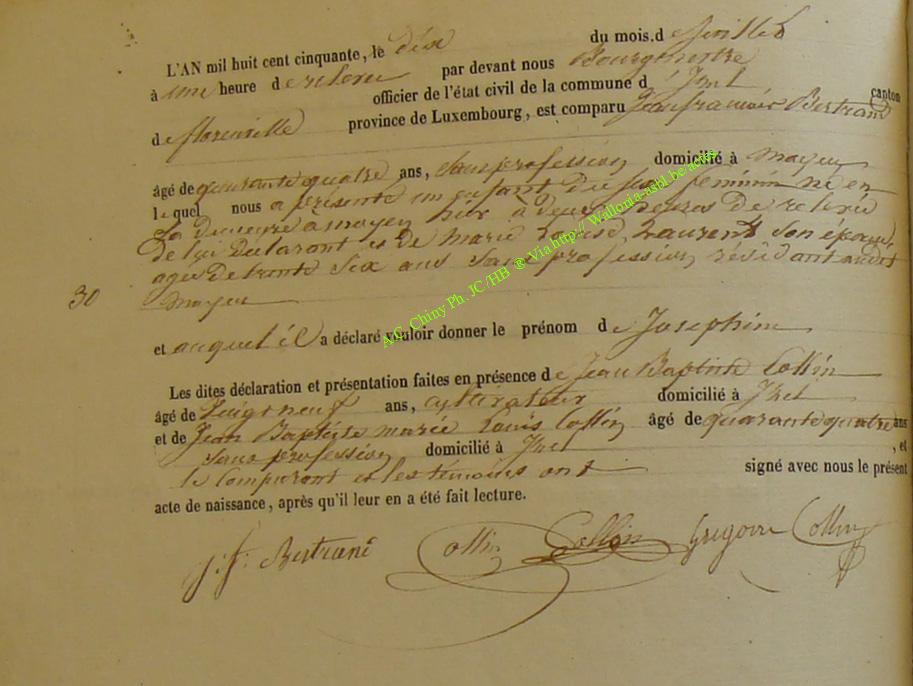 L'AN mil huit cent cinquante, le dix du mois de juillet
à une heure de relevée par devant nous Bourgmestre
officier de l'état civil de la commune d'Izel canton
de florenville province de Luxembourg, est comparu Jean françois Bertrand
âgé de quarante quatre ans, sans profession domicilié à moyen
lequel nous a présenté un enfant du sexe feminin né en
sa demeure à moyen hier à deux heures de relevée
de lui déclarant et de Marie Louise Laurent son épouse
agée de trente six ans sans profession, résidant audit
30 moyen
et auquel il a déclaré vouloir donner le prénom de Josephine
Les dites déclaration et présentation faites en présence de Jean Baptiste Collin
âgé de vingt neuf ans, cultivateur domicilié à Izel
et de Jean Baptiste marie Louis Collin âgé de quarante quatre ans
sans profession domicilié à Izel , et
le comparant et les témoins ont signé avec nous le présent
acte de naissance, après qu'il leur en a été fait lecture.
J. F. Bertrand Collin Collin Gregoire Collin
A.C. Chiny Ph. JC/HB ® Via http:// Wallonia-asbl.be/actes